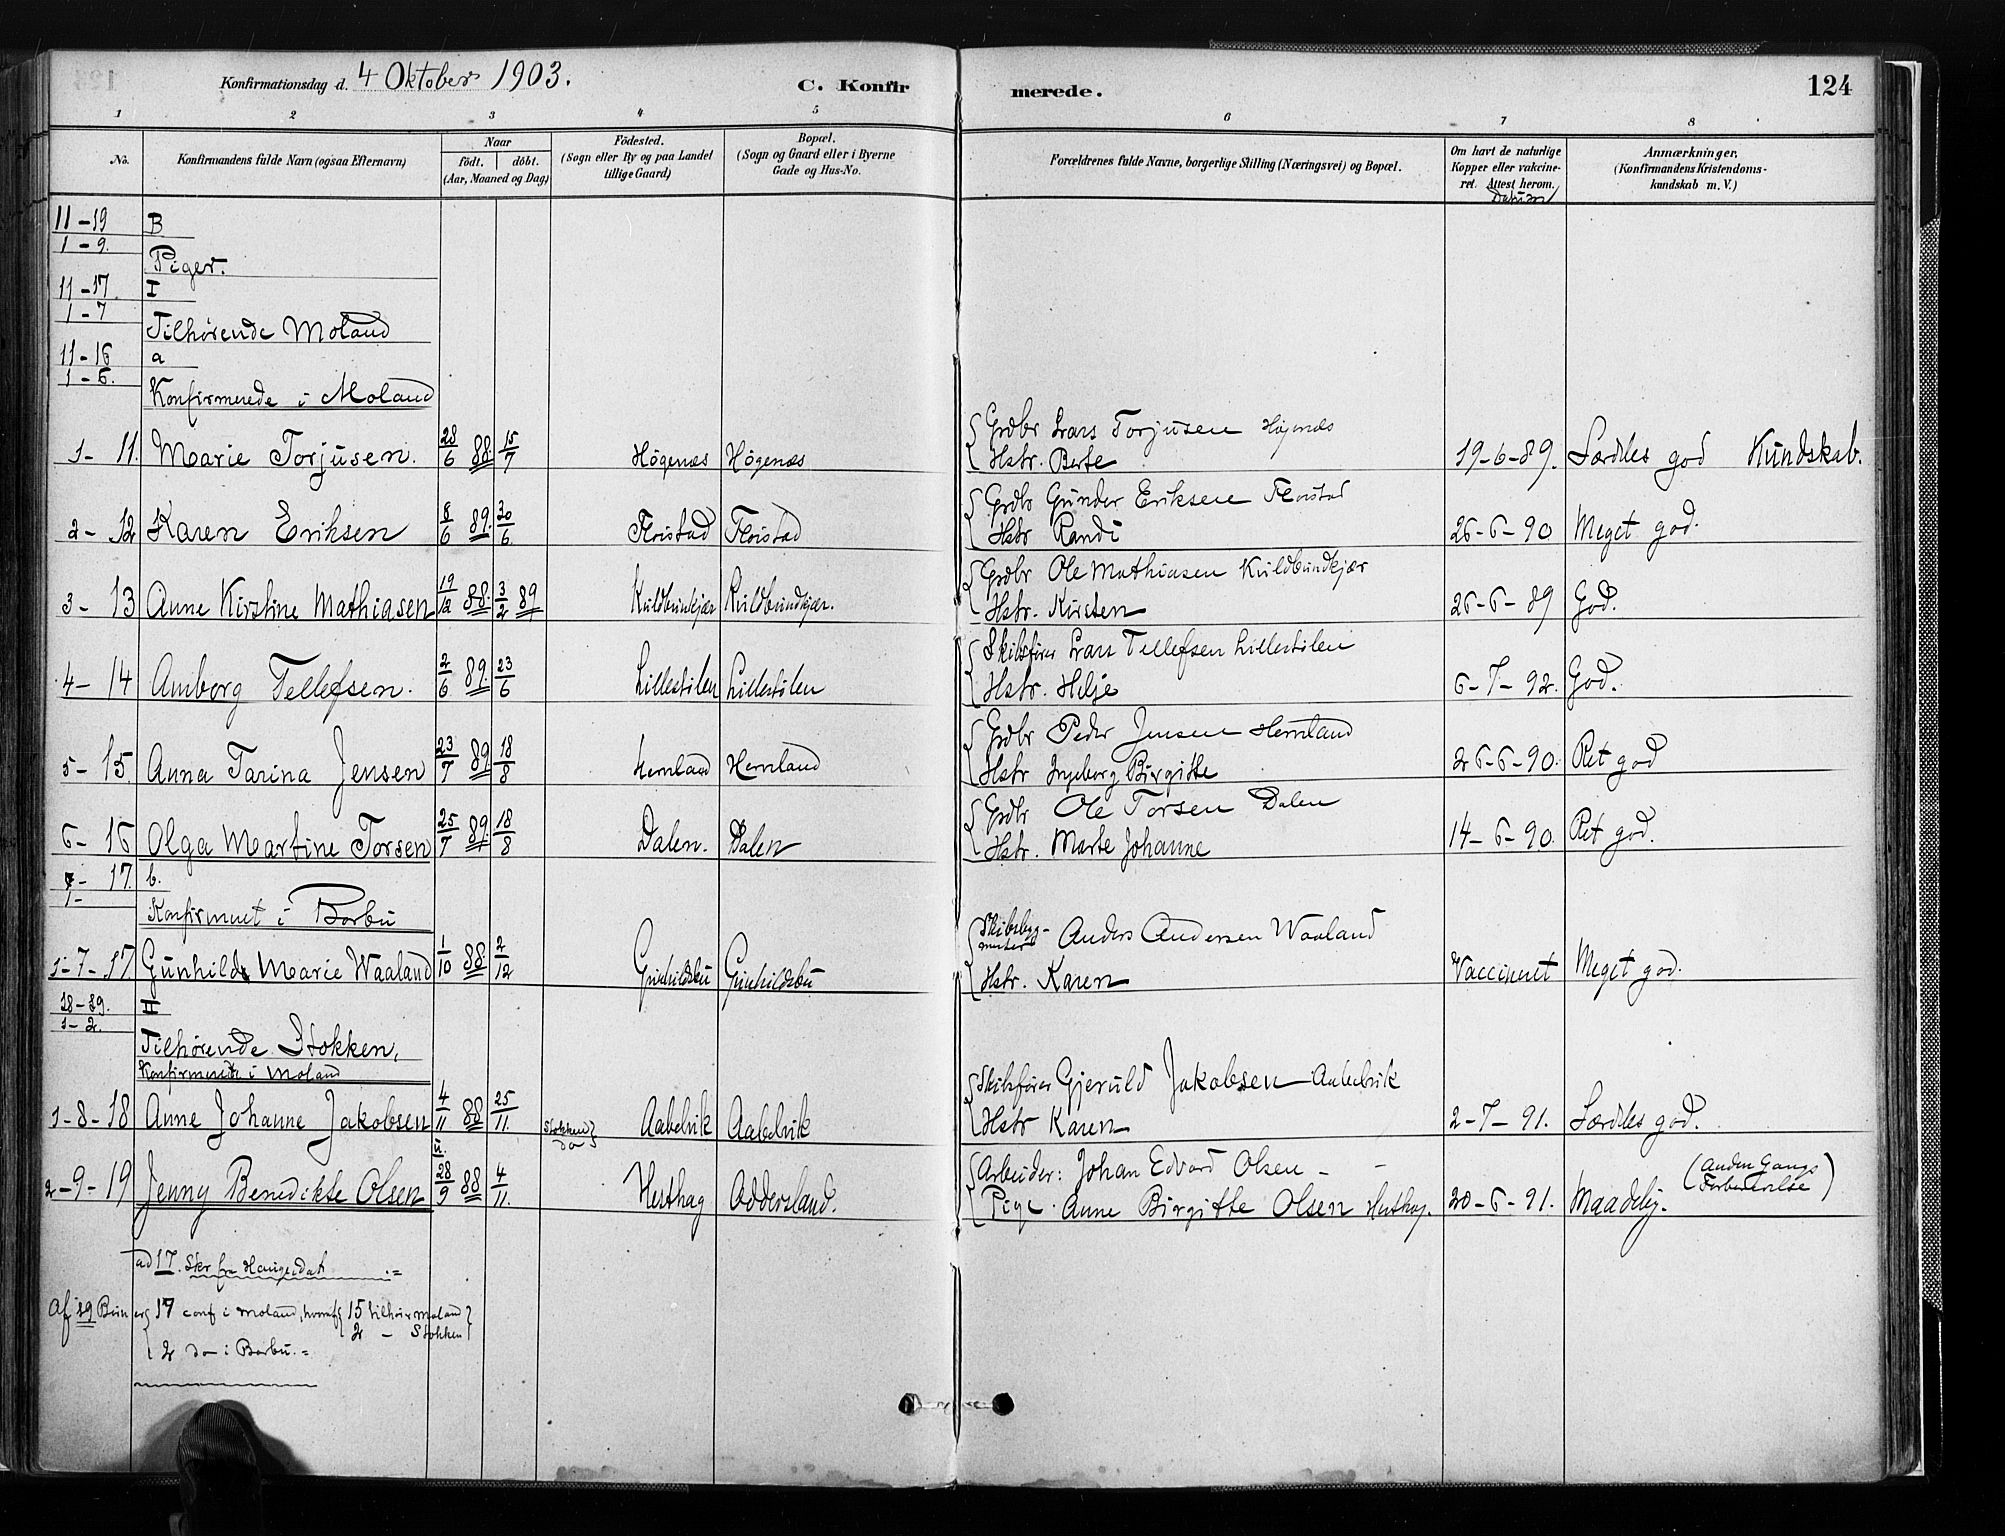 Konfirmationsdag d. 4 Oktober 1903. C. Konfirmerede. 124
1 2 3 4 5 6 7 8
No.
Konfirmandens fulde Navn (ogsaa Efternavn)
Naar
födt. döbt.
(Aar, Maaned og Dag)
Födested.
(Sogn eller By og paa Landet
tillige Gaard)
Bopæl.
(Sogn og Gaard eller i Byerne
Gade og Hus-No.
Forældrenes fulde Navne, borgerlige Stilling (Næringsvei) og Bopæl.
Om havt de naturlige
Kopper eller vakcine-
ret. Attest herom.
Datum
Anmærkninger.
(Konfirmandens Kristendoms-
kundskab m. V.)
11-19 B
1-9.
Piger.
11-17. I
1-7
Tilhørende Moland
11-16 a
1-6.
Konfirmerede i Moland
1- 11. Marie Torjusen. 28/6 88. 15/7 Högenæs Högenæs { Grdbr Lars Torjusen Højenæs
Hstr. Berte 19-6-89. Særdles god Kundskab.
2- 12 Karen Eriksen 8/6 89. 30/6. Floistad Floistad { Grdbr Gunder Eriksen Floistad
Hstr Randi 26-6-90 Meget god.
3- 13 Anne Kirstine Mathiasen 19/12 88. 3/2 89 Kuldbunkjær Kuldbundkjær. { Grdbr Ole Mathiasen Kuldbundkjær
Hstr. Kirsten 26-6-89 God.
4- 14 Anborg Tellefsen. 2/6 89. 23/6 Lillestölen Lillestölen { Skibsfører Lars Tellefsen Lillestölen
Hstr. Helje 6-7-92. God.
5- 15 Anna Tarina Jensen 23/7 89 18/8 Hernland Hernland { Grdbr Peder Jensen Hernland
Hstr Ingeborg Birgitte 26-6-90. Ret god
6- 16 Olga Martine Torsen 25/7 89. 18/8 Dalen. Dalen { Grdbr Ole Torsen Dalen
Hstr. Marte Johanne 14-6-90. Ret god.
7- 17. b.
1-
Konfirmeret i Barbu
1-7-17 Gunhilde Marie Waaland 1/10 88. 2/12 Gunhildsbu Gunhildsbu { Skibsbygmester Anders Andersen Waaland
Hstr. Karen Vaccineret Meget god.
18-89. II
1-2.
Tilhørende Stokken,
Konfirmerede i Moland
1-8-18 Anne Johanne Jakobsen 4/11 88 25/11. Stokken} Aabelvik Aabelvik { Skibsfører Gjeruld Jakobsen Aabelvik
Hstr Karen 2-7-91. Særdles god.
2-9-19 Jenny Benedikte Olsen u. 28/9 88 4/11. do Hesthag Oddersland. { Arbeider: Johan Edvard Olsen - -
Pige. Anne Birgitte Olsen Hesthag. 20-6-91. Maadelig. (Anden Gangs
Forberedelse)
ad 17. Skr fra Haugesdat
Af 19 Börn er { 17 conf i Moland, hvoraf { 15 tilhører Moland
2 - Stokken }
2 do i Barbu.